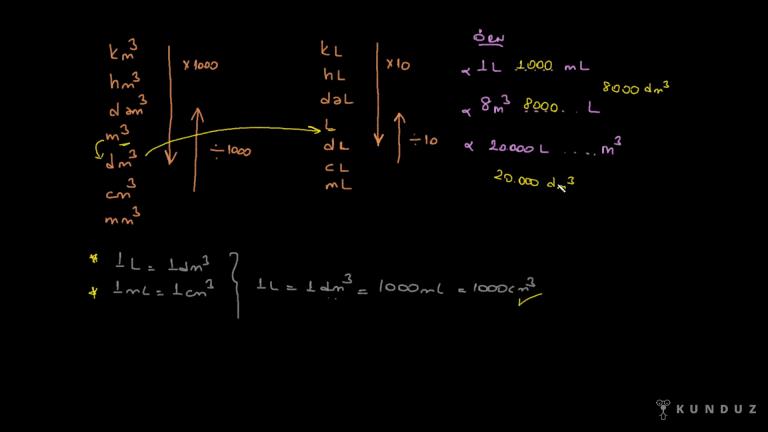 km³
hm³
dam³
m³
dm³
cm³
mm³
×1000
÷1000
kL
hL
daL
L
dL
cL
mL
×10
÷10
ÖRN
∝ 1L 1.000 mL
8000 dm³
∝ 8m³ 8000... L
∝ 20.000L .... m³
20.000 dm³
* 1L = 1dm³
* 1mL = 1cm³
1L = 1dm³ = 1000mL = 1000cm³
KUNDUZ